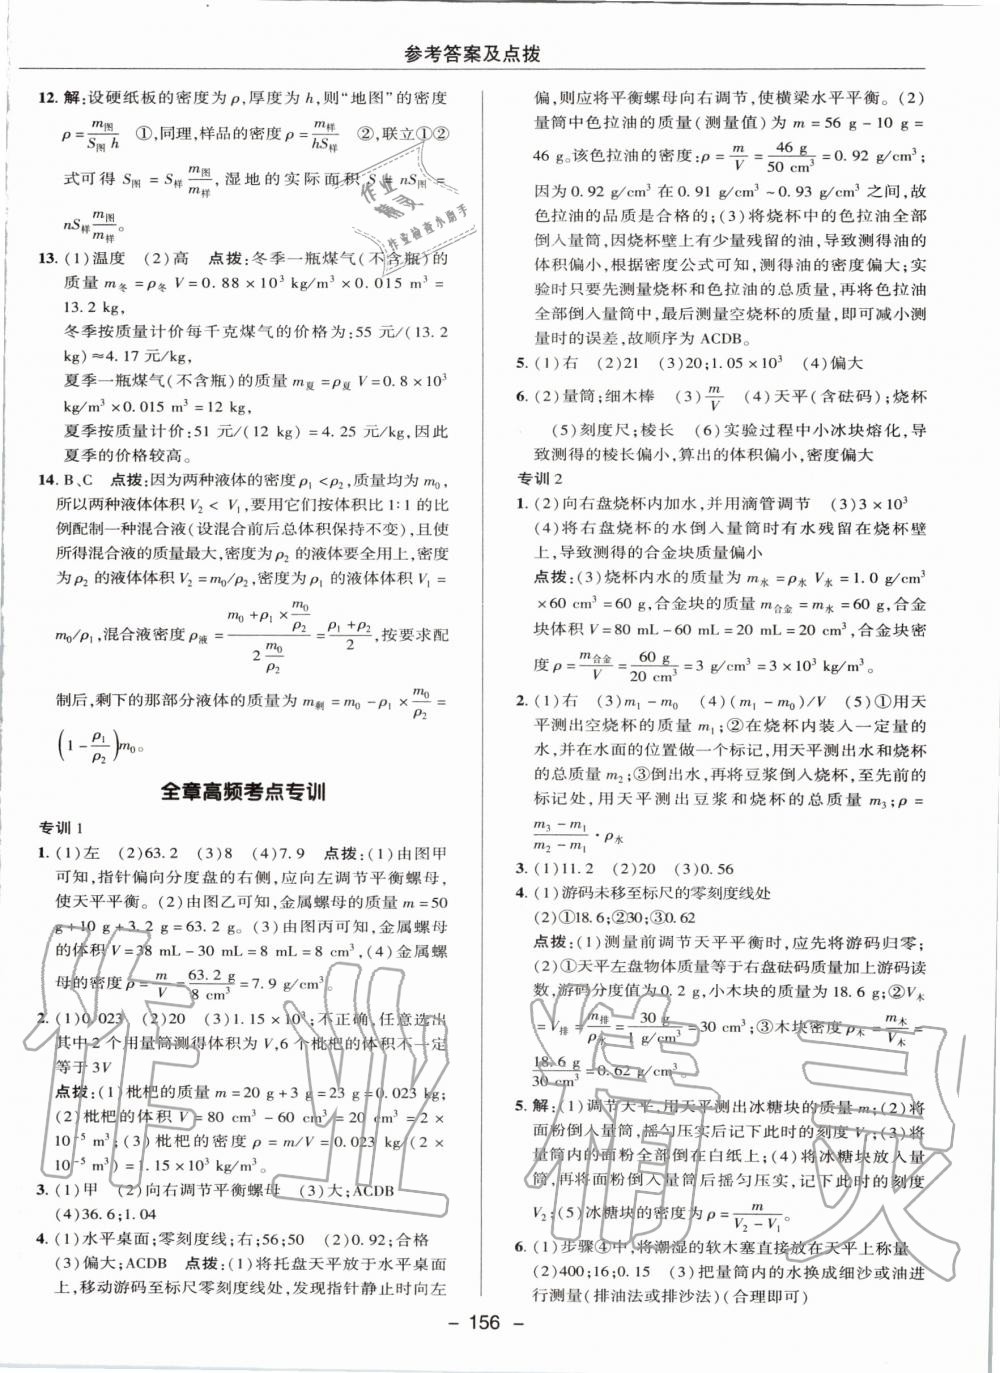 参考答案及点拨
12. 解:设硬纸板的密度为 ρ,厚度为 h,则“地图”的密度
ρ=m图/(S图 h) ①,同理,样品的密度 ρ=m样/(hS样) ②,联立①②
式可得 S图 = S样 m图/m样,湿地的实际面积 S = nS图 =
nS样 m图/m样。
13. (1)温度 (2)高 点拨:冬季一瓶煤气(不含瓶)的
质量 m冬=ρ冬 V=0.88×10³ kg/m³×0.015 m³=
13.2 kg,
冬季按质量计价每千克煤气的价格为:55 元/(13.2
kg)≈4.17 元/kg,
夏季一瓶煤气(不含瓶)的质量 m夏=ρ夏 V=0.8×10³
kg/m³×0.015 m³=12 kg,
夏季按质量计价:51 元/(12 kg)= 4.25 元/kg,因此
夏季的价格较高。
14. B、C 点拨:因为两种液体的密度 ρ₁<ρ₂,质量均为 m₀,
所以两种液体体积 V₂< V₁,要用它们按体积比 1:1 的比
例配制一种混合液(设混合前后总体积保持不变),且使
所得混合液的质量最大,密度为 ρ₂ 的液体要全用上,密度
为 ρ₂ 的液体体积 V₂=m₀/ρ₂,密度为 ρ₁ 的液体体积 V₁=
m₀/ρ₁,混合液密度 ρ液=(m₀+ρ₁×m₀/ρ₂)/(2 m₀/ρ₂)=(ρ₁+ρ₂)/2,按要求配
制后,剩下的那部分液体的质量为 m剩=m₀-ρ₁×m₀/ρ₂=
(1-ρ₁/ρ₂)m₀。
全章高频考点专训
专训 1
1. (1)左 (2)63.2 (3)8 (4)7.9 点拨:(1)由图甲
可知,指针偏向分度盘的右侧,应向左调节平衡螺母,
使天平平衡。(2)由图乙可知,金属螺母的质量 m=50
g+10 g+3.2 g=63.2 g。(3)由图丙可知,金属螺母
的体积 V=38 mL-30 mL=8 mL=8 cm³,(4)金属螺
母的密度 ρ=m/V=63.2 g/8 cm³=7.9 g/cm³。
2. (1)0.023 (2)20 (3)1.15×10³;不正确,任意选出
其中 2 个用量筒测得体积为 V,6 个枇杷的体积不一定
等于 3V
点拨:(1)枇杷的质量 m=20 g+3 g=23 g=0.023 kg;
(2)枇杷的体积 V=80 cm³-60 cm³=20 cm³=2×
10⁻⁵ m³;(3)枇杷的密度 ρ=m/V=0.023 kg/(2×
10⁻⁵ m³)=1.15×10³ kg/m³。
3. (1)甲 (2)向右调节平衡螺母 (3)大;ACDB
(4)36.6;1.04
4. (1)水平桌面;零刻度线;右;56;50 (2)0.92;合格
(3)偏大;ACDB 点拨:(1)将托盘天平放于水平桌面
上,移动游码至标尺零刻度线处,发现指针静止时向左
偏,则应将平衡螺母向右调节,使横梁水平平衡。(2)
量筒中色拉油的质量(测量值)为 m=56 g-10 g=
46 g。该色拉油的密度:ρ=m/V=46 g/50 cm³=0.92 g/cm³;
因为 0.92 g/cm³ 在 0.91 g/cm³~0.93 g/cm³ 之间,故
色拉油的品质是合格的;(3)将烧杯中的色拉油全部
倒入量筒,因烧杯壁上有少量残留的油,导致测得油的
体积偏小,根据密度公式可知,测得油的密度偏大;实
验时只要先测量烧杯和色拉油的总质量,再将色拉油
全部倒入量筒中,最后测量空烧杯的质量,即可减小测
量时的误差,故顺序为 ACDB。
5. (1)右 (2)21 (3)20;1.05×10³ (4)偏大
6. (2)量筒;细木棒 (3)m/V (4)天平(含砝码);烧杯
(5)刻度尺;棱长 (6)实验过程中小冰块熔化,导致
测得的棱长偏小,算出的体积偏小,密度偏大
专训 2
1. (2)向右盘烧杯内加水,并用滴管调节 (3)3×10³
(4)将右盘烧杯的水倒入量筒时有水残留在烧杯壁
上,导致测得的合金块质量偏小
点拨:(3)烧杯内水的质量为 m水=ρ水 V水=1.0 g/cm³
×60 cm³=60 g,合金块的质量 m合金=m水=60 g,合金
块体积 V=80 mL-60 mL=20 mL=20 cm³,合金块密
度 ρ=m合金/V=60 g/20 cm³=3 g/cm³=3×10³ kg/m³。
2. (1)右 (3)m₁-m₀ (4)(m₁-m₀)/V (5)①用天
平测出空烧杯的质量 m₁;②在烧杯内装入一定量的
水,并在水面的位置做一个标记,用天平测出水和烧杯
的质量为 m₂;③倒出水,再将豆浆倒入烧杯,至先前的
标记处,用天平测出豆浆和烧杯的总质量 m₃;ρ=
(m₃-m₁)/(m₂-m₁)·ρ水
3. (1)11.2 (2)20 (3)0.56
4. (1)游码未移至标尺的零刻度线处
(2)①18.6;②30;③0.62
点拨:(1)测量前调节天平平衡时,应先将游码归零;
(2)①天平左盘物体质量等于右盘砝码质量加上游码读
数,游码分度值为 0.2 g,小木块的质量为 18.6 g;②V木
=V排=m排/ρ水=30 g/1 g/cm³=30 cm³;③木块密度 ρ木=m木/V木=
18.6 g/30 cm³=0.62 g/cm³。
5. 解:(1)调节天平,用天平测出冰糖块的质量 m;(2)将
面粉倒入量筒,摇匀压实后记下此时的刻度 V₁;(3)将
量筒内的面粉全部倒在白纸上;(4)将冰糖块放入量
筒,再将面粉倒入量筒后摇匀压实,记下此时的刻度
V₂;(5)冰糖块的密度为 ρ=m/(V₂-V₁)。
6. (1)步骤④中,将潮湿的软木塞直接放在天平上称量
(2)400;16;0.15 (3)把量筒内的水换成细沙或油进
行测量(排油法或排沙法)(合理即可)
- 156 -
作业
精灵
作业检查小助手
作业精灵